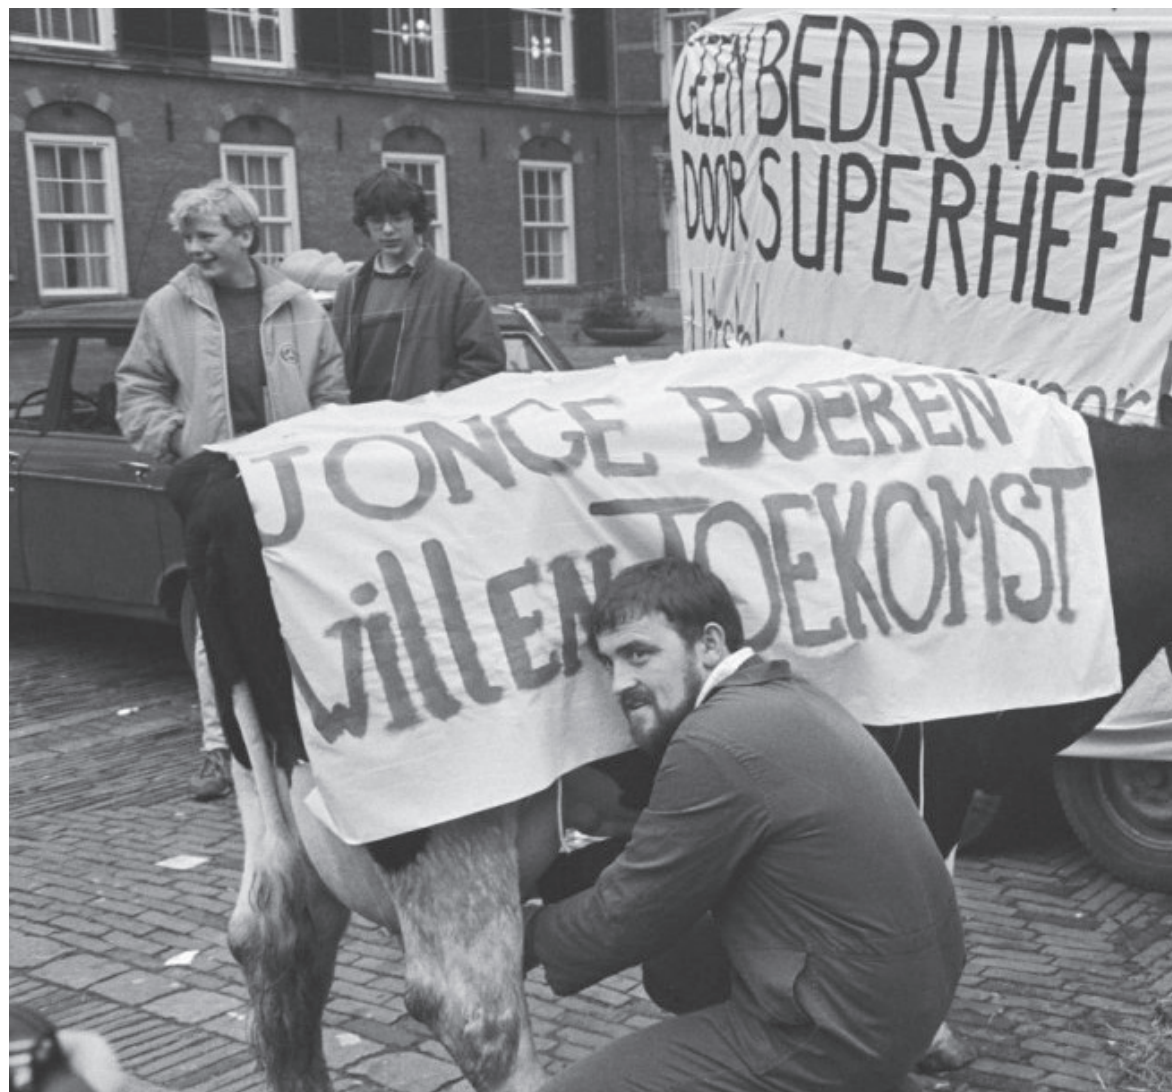 GEEN BEDRIJVEN
DOOR SUPERHEFF
JONGE BOEREN
willEN TOEKOMST